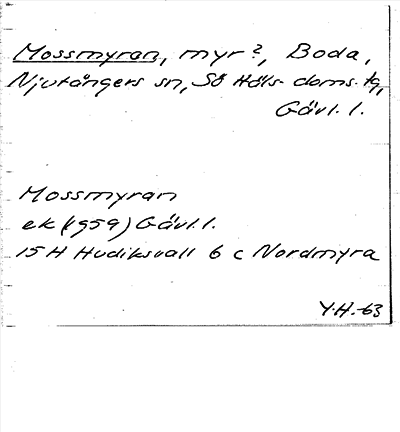 Mossmyran, myr?, Boda,
Njutångers sn, Sö Häls. doms. tg,
Gävl. l.
Mossmyran
ek (1959) Gävl. l.
15 H Hudiksvall 6 c Nordmyra
Y.H.-63